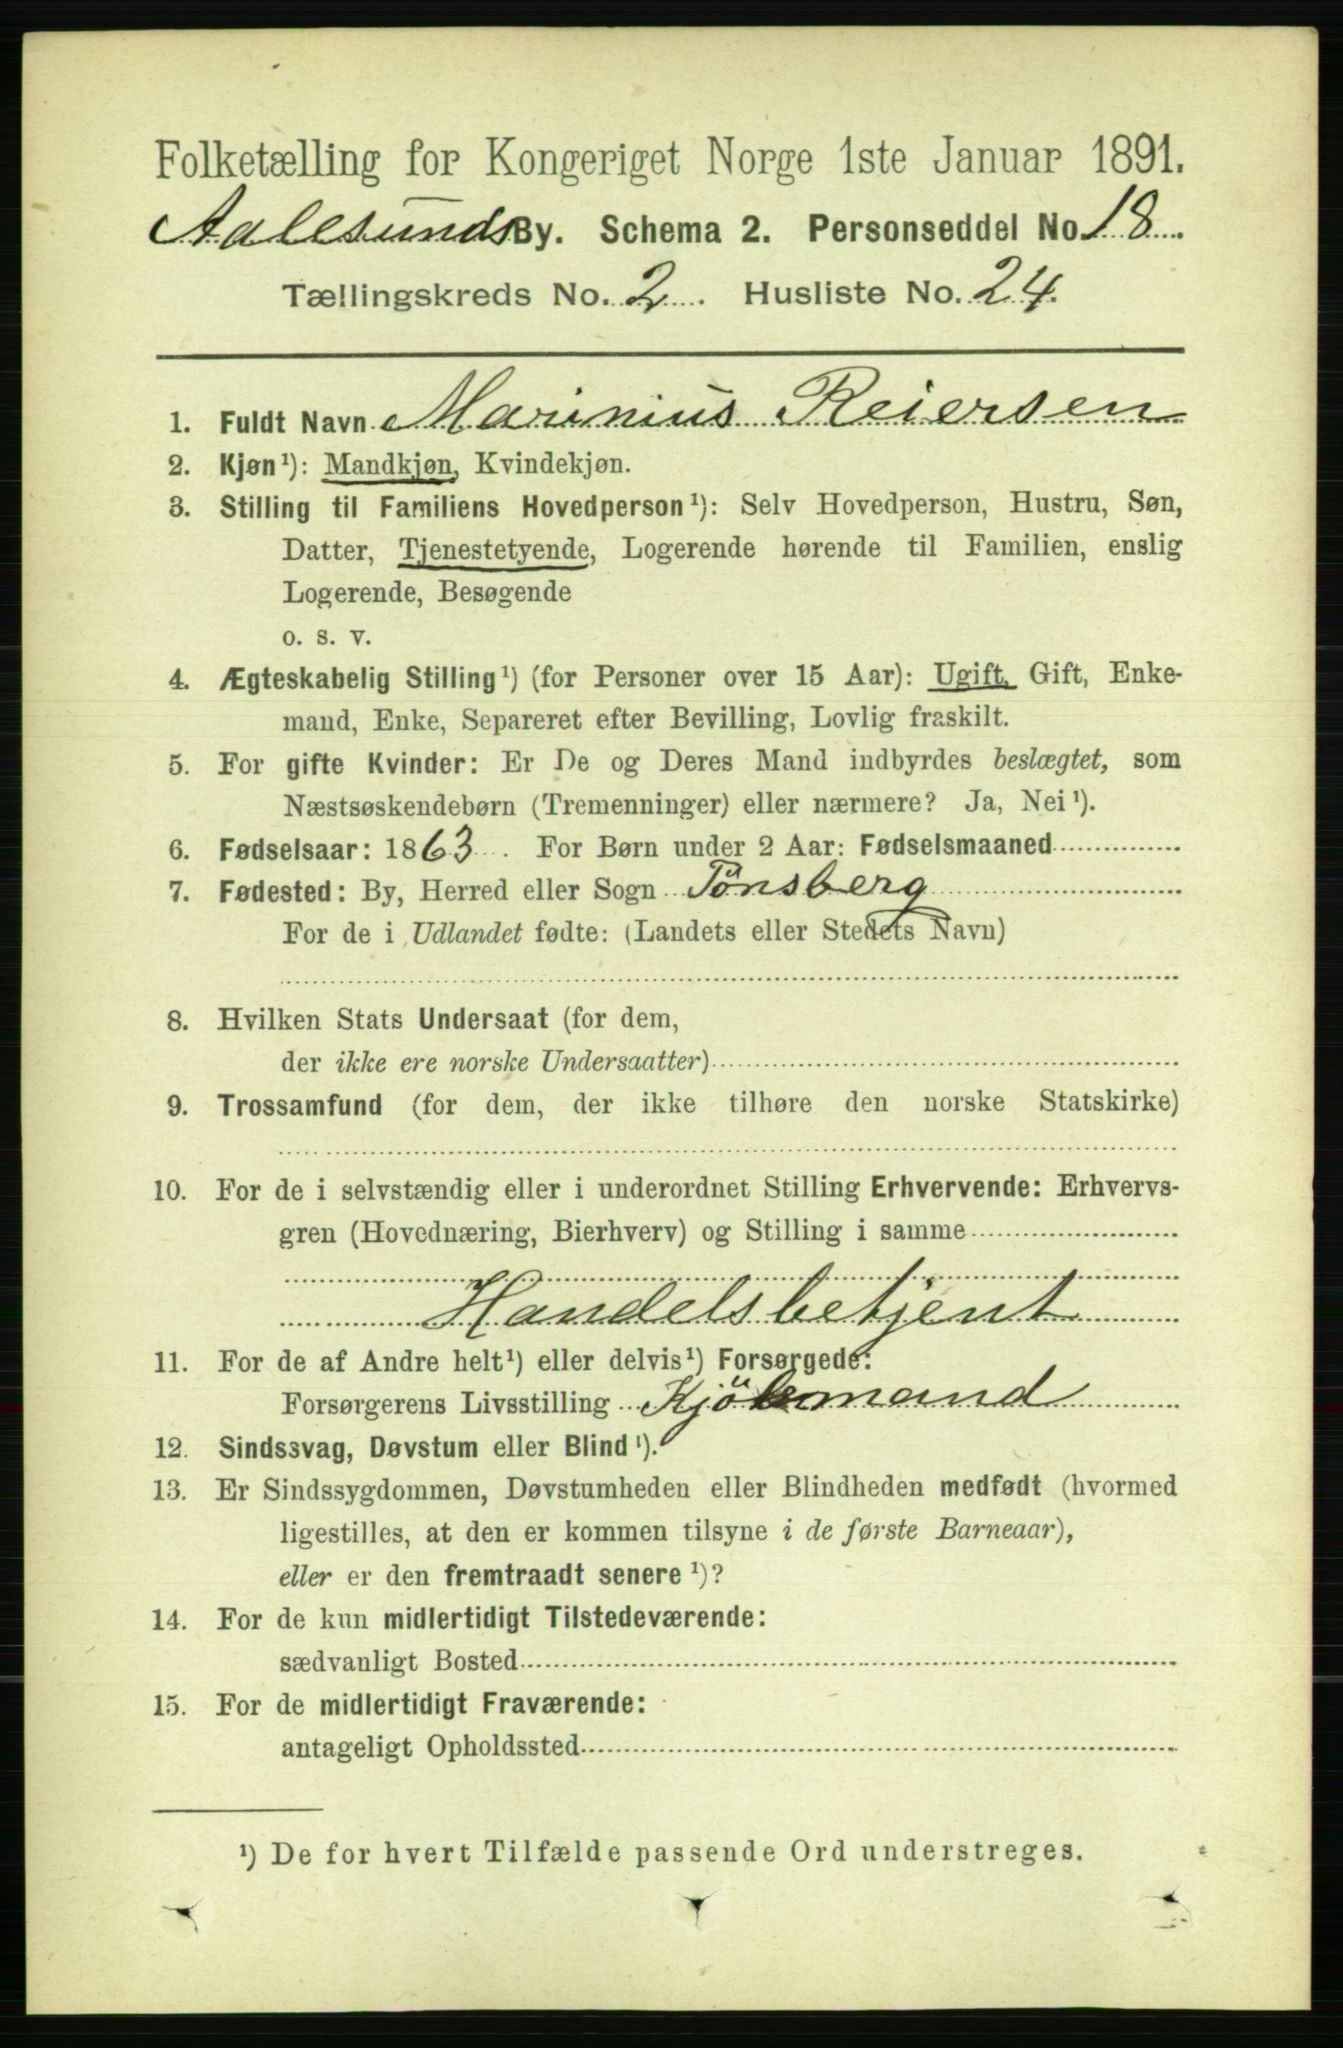 Folketælling for Kongeriget Norge 1ste Januar 1891.
Aalesunds By. Schema 2. Personseddel No. 18.
Tællingskreds No. 2. Husliste No. 24.
1. Fuldt Navn Marinius Reiersen
2. Kjøn¹): Mandkjøn, Kvindekjøn.
3. Stilling til Familiens Hovedperson¹): Selv Hovedperson, Hustru, Søn,
Datter, Tjenestetyende, Logerende hørende til Familien, enslig
Logerende, Besøgende
o. s. v.
4. Ægteskabelig Stilling¹) (for Personer over 15 Aar): Ugift, Gift, Enke-
mand, Enke, Separeret efter Bevilling, Lovlig fraskilt.
5. For gifte Kvinder: Er De og Deres Mand indbyrdes beslægtet, som
Næstsøskendebørn (Tremenninger) eller nærmere? Ja, Nei¹).
6. Fødselsaar: 1863. For Børn under 2 Aar: Fødselsmaaned
7. Fødested: By, Herred eller Sogn Tönsberg
For de i Udlandet fødte: (Landets eller Stedets Navn)
8. Hvilken Stats Undersaat (for dem,
der ikke ere norske Undersaatter)
9. Trossamfund (for dem, der ikke tilhøre den norske Statskirke)
10. For de i selvstændig eller i underordnet Stilling Erhvervende: Erhvervs-
gren (Hovednæring, Bierhverv) og Stilling i samme
Handelsbetjent
11. For de af Andre helt¹) eller delvis¹) Forsørgede:
Forsørgerens Livsstilling Kjöbmand
12. Sindssvag, Døvstum eller Blind¹).
13. Er Sindssygdommen, Døvstumheden eller Blindheden medfødt (hvormed
ligestilles, at den er kommen tilsyne i de første Barneaar),
eller er den fremtraadt senere¹)?
14. For de kun midlertidigt Tilstedeværende:
sædvanligt Bosted
15. For de midlertidigt Fraværende:
antageligt Opholdssted
¹) De for hvert Tilfælde passende Ord understreges.